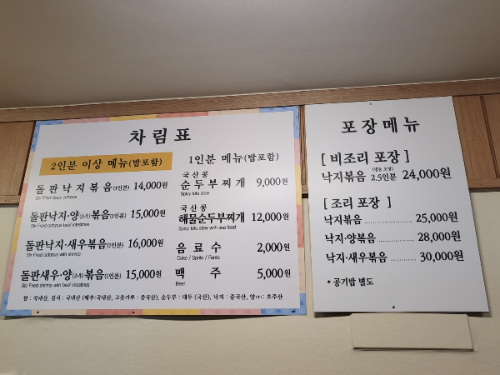 차림표
2인분 이상 메뉴(밥포함)
돌판낙지볶음(1인분) 14,000원
Stir Fried Spicy octopus
돌판낙지·양(소위)볶음(1인분) 15,000원
Stir Fried octopus beef intestines
돌판낙지·새우볶음(1인분) 16,000원
Stir Fried octopus with shrimp
돌판새우·양(소위)볶음(1인분) 15,000원
Stir Fried shrimp with beef intestines
1인분 메뉴(밥포함)
국산콩
순두부찌개 9,000원
Spicy tofu stew
국산콩
해물순두부찌개 12,000원
Spicy tofu stew with sea food
음료수 2,000원
Coke / Sprite / Fanta
맥주 5,000원
Beer
쌀 : 국내산, 김치 : 국내산 (배추:국내산, 고춧가루 : 중국산), 순두부 : 대두 (국산), 낙지 : 중국산, 양(소위): 호주산
포장메뉴
[ 비조리 포장 ]
낙지볶음 2.5인분 24,000원
[ 조리 포장 ]
낙지볶음 .................. 25,000원
낙지·양볶음 .............. 28,000원
낙지·새우볶음 ........... 30,000원
* 공기밥 별도